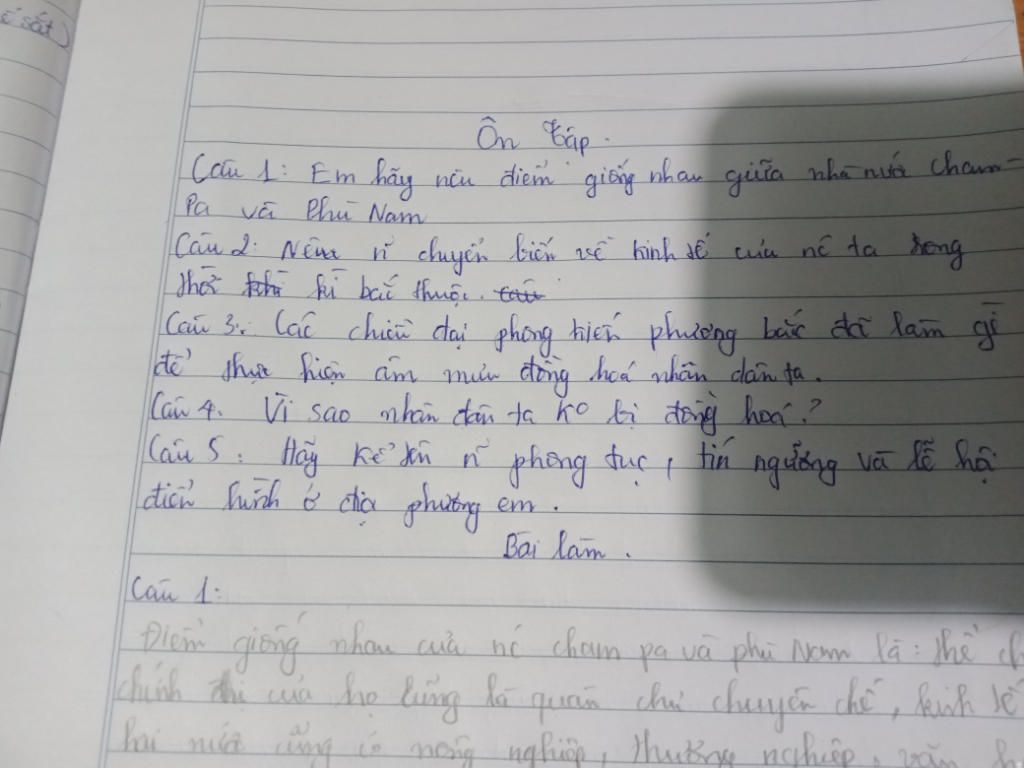 ế sắt)
Ôn tập.
Câu 1: Em hãy nêu điểm giống nhau giữa nhà nước Cham-
Pa và Phù Nam
Câu 2: Nêu n~ chuyển biến về kinh tế của nc ta trong
thời kì bắc thuộc.
Câu 3: Các chiều đại phong kiến phương bắc đã làm gì
để thực hiện âm mưu đồng hoá nhân dân ta.
Câu 4. Vì sao nhân dân ta ko bị đồng hoá?
Câu 5: Hãy kể tên n~ phong tục, tín ngưỡng và lễ hội
điển hình ở địa phương em.
Bài làm.
Câu 1:
Điểm giống nhau của nc cham pa và phù Nam là: thể ch
chính của họ cũng là quân chủ chuyên chế, kinh tế
hai nước cũng có nông nghiệp, thương nghiệp, văn h